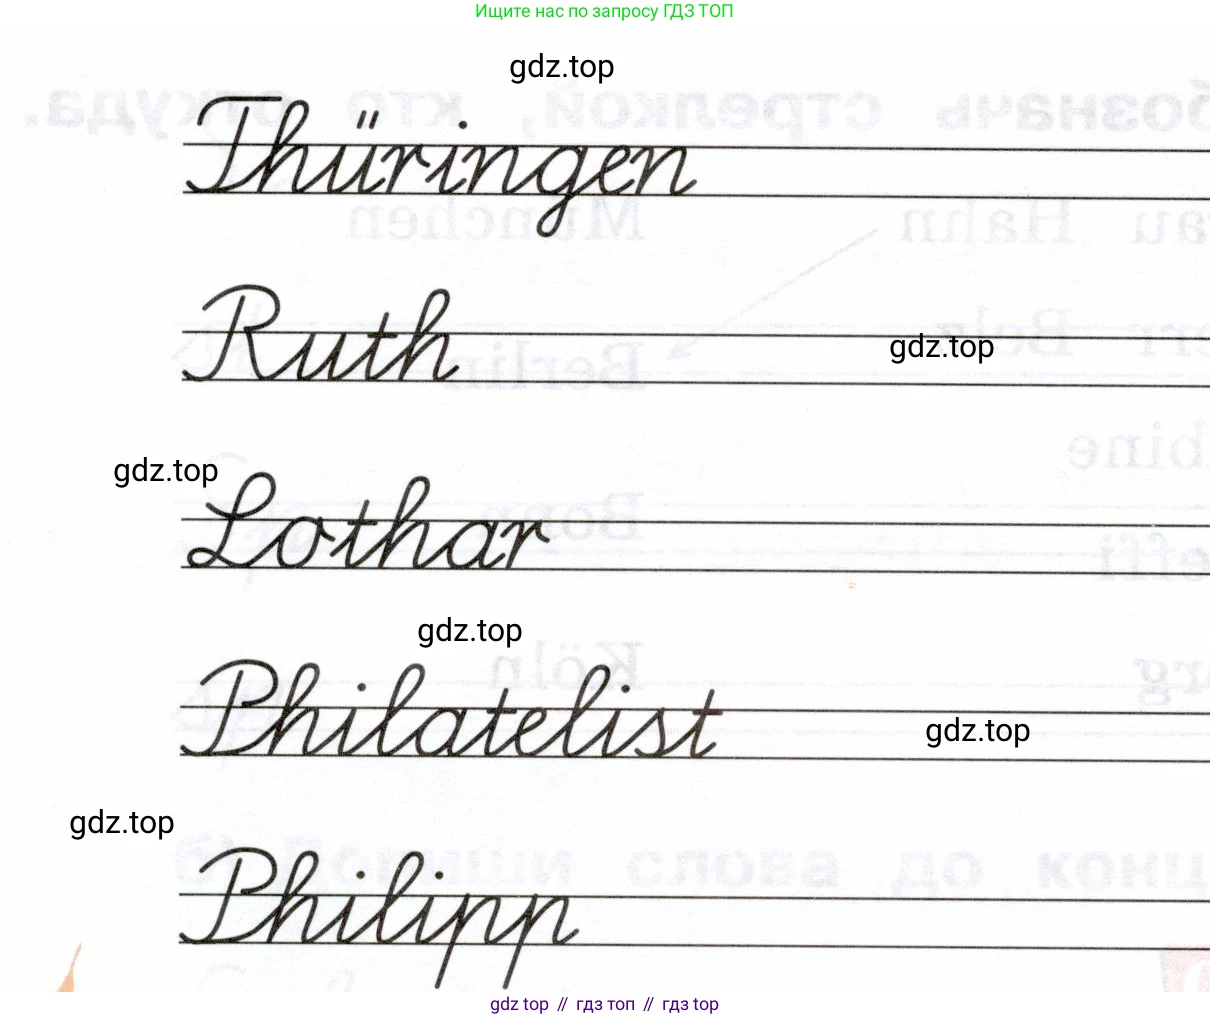 Ищите нас по запросу ГДЗ ТОП
gdz.top
Thüringen
Ruth
gdz.top
gdz.top
Lothar
gdz.top
Philatelist
gdz.top
gdz.top
Philipp
gdz top // гдз топ // гдз top